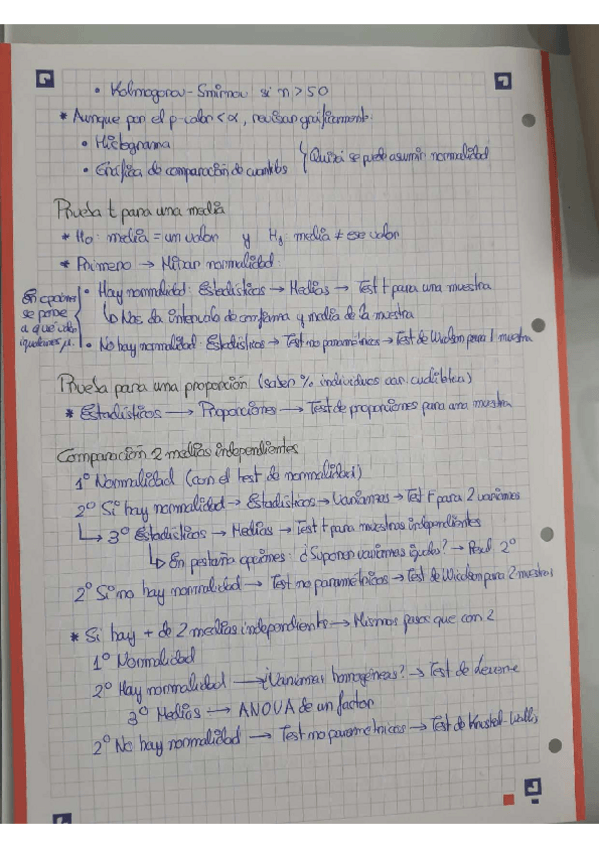 • Kolmogorov-Smirnov si n > 50
* Aunque por el p-valor < α, revisar gráficamente:
• Histograma
• Gráfica de comparación de cuantiles } Quizá se puede asumir normalidad
Prueba t para una media
* H₀: media = un valor y H₁: media ≠ ese valor
* Primero → Mirar normalidad:
• Hay normalidad: Estadísticos → Medias → Test t para una muestra
↳ Nos da intervalo de confianza y media de la muestra
• No hay normalidad: Estadísticos → Test no paramétricos → Test de Wilcoxon para 1 muestra
En opciones
se pone
a que valor
igualamos μ.
Prueba para una proporción (saber % individuos con cualidad)
* Estadísticos → Proporciones → Test de proporciones para una muestra
Comparación 2 medias independientes
1º Normalidad (con el test de normalidad)
2º Si hay normalidad → Estadísticos → Varianzas → Test F para 2 varianzas
↳ 3º Estadísticos → Medias → Test t para muestras independientes
↳ En pestaña opciones: ¿Suponer varianzas iguales? → 2º
2º Si no hay normalidad → Test no paramétricos → Test de Wilcoxon para 2 muestras
* Si hay + de 2 medias independientes → Mismos pasos que con 2
1º Normalidad
2º Hay normalidad → ¿Varianzas homogéneas? → Test de Levene
3º Medias → ANOVA de un factor
2º No hay normalidad → Test no paramétricos → Test de Kruskal-Wallis